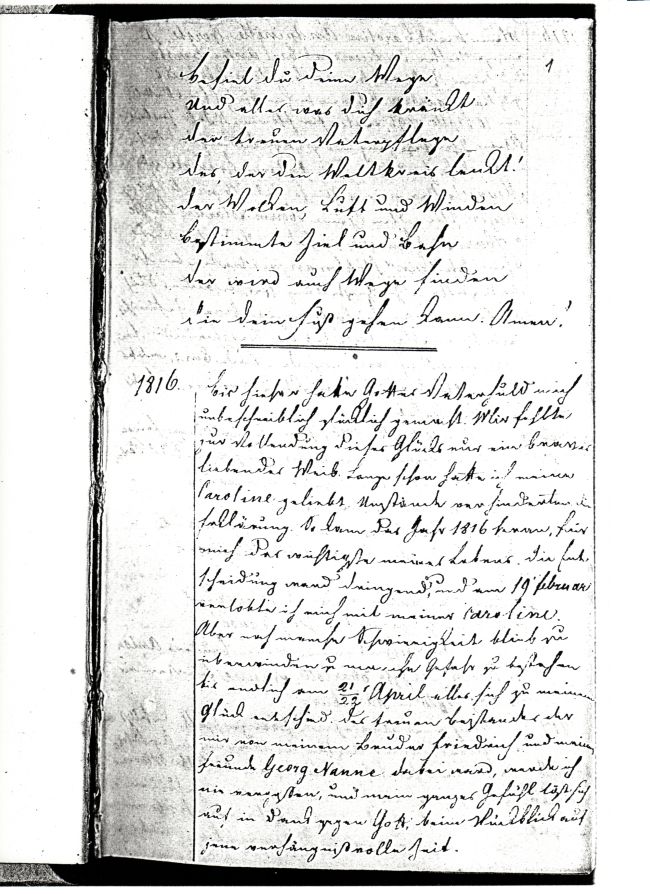 1
befiel du deine Wege
Und alles was dich kränkt
der treuen Vaterpflege
des der den Weltkreis lenkt!
der Wolken, Luft und Winden
bestimmte Ziel und Bahn
der wird auch Wege finden
die dein Fuß gehen kann. Amen!
1816. Bis hieher hatte Gottes Vaterhuld mich
unbeschreiblich glücklich gemacht. Mir fehlte
zur Vollendung dieses Glücks nur ein braves
liebendes Weib. Lange schon hatte ich meine
Caroline geliebt. Umstände verhinderten die
Erklärung. So kam das Jahr 1816 heran, für
mich das wichtigste meines Lebens, die Ent¬
scheidung ward dringend, und am 19 februar
verlobte ich mich mit meiner Caroline.
Aber noch manche Schwierigkeit blieb zu
überwinden u manche Gefahr zu bestehen
bis endlich am 21/22 April alles sich zu meinem
Glück entschied. des treuen Beistandes der
mir von meinem Bruder Friedrich und meinem
Freunde Georg Nanne dabei ward, werde ich
nie vergessen, und mein ganzes Gefühl löst sich
auf in Dank gegen Gott, beim Rückblick auf
jene verhängnißvolle Zeit.